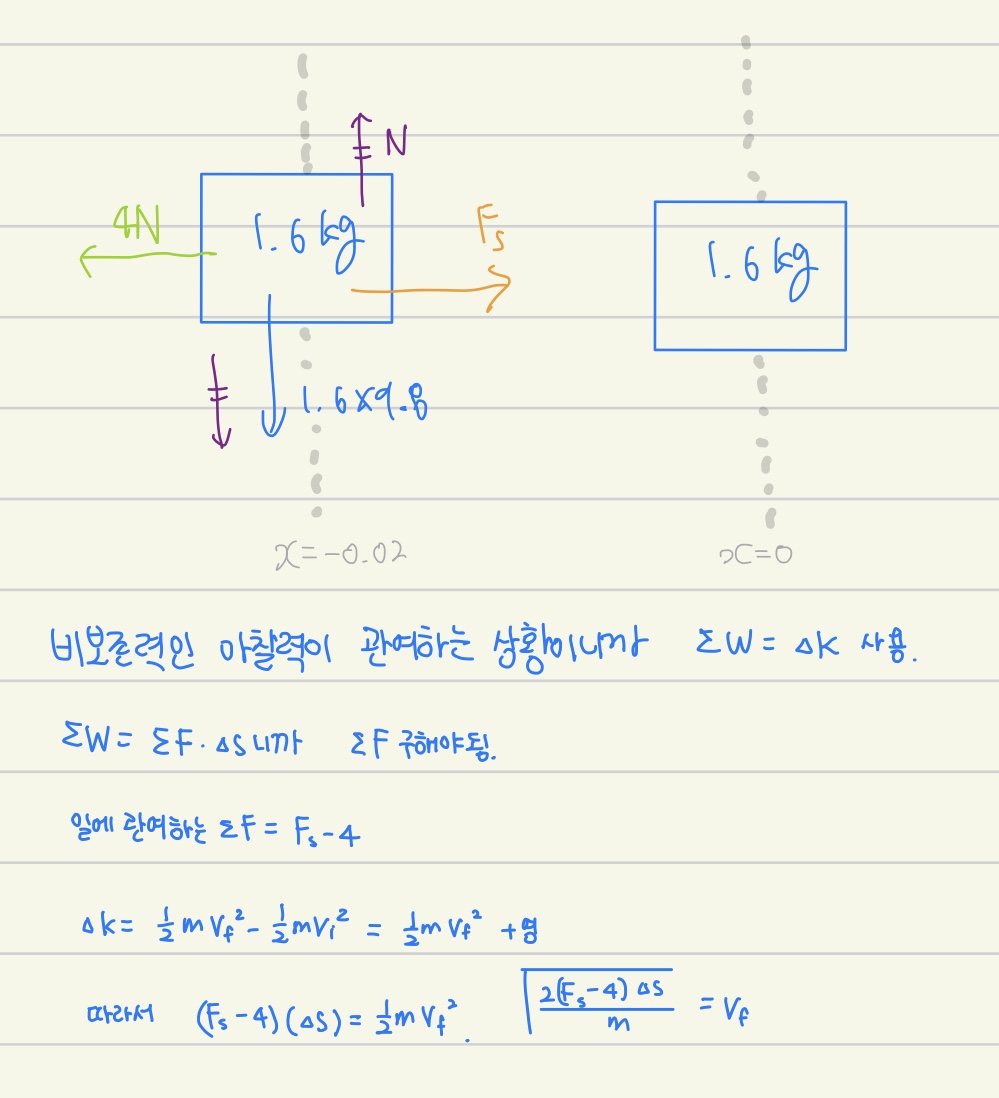 N
4N
1.6 kg
F_s
1.6 kg
1.6 x 9.8
x = -0.02
x = 0
비보존력인 마찰력이 관여하는 상황이니까 ΣW = Δk 사용.
ΣW = ΣF · ΔS 니까 ΣF 구해야됨.
일에 관여하는 ΣF = F_s - 4
Δk = 1/2 m V_f^2 - 1/2 m V_i^2 = 1/2 m V_f^2 + 영
따라서 (F_s - 4)(ΔS) = 1/2 m V_f^2. √(2(F_s - 4) ΔS / m) = V_f